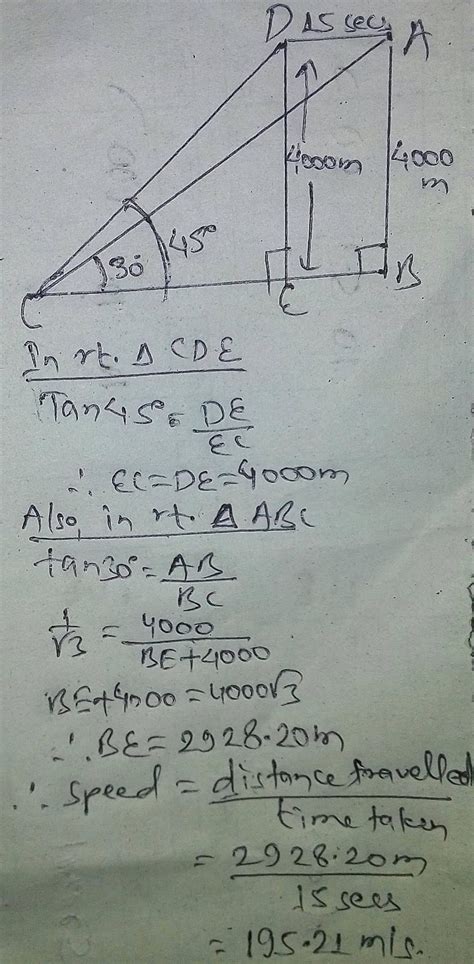 D 15 secs A
4000m
4000
m
45°
30°
C E B
In rt. Δ CDE
Tan45° = DE/EC
∴ EC=DE=4000m
Also, in rt. Δ ABC
tan30° = AB/BC
1/√3 = 4000/BE+4000
BE+4000=4000√3
∴ BE = 2928.20m
∴ speed = distance travelled/time taken
= 2928.20m/15 secs
= 195.21 m/s.